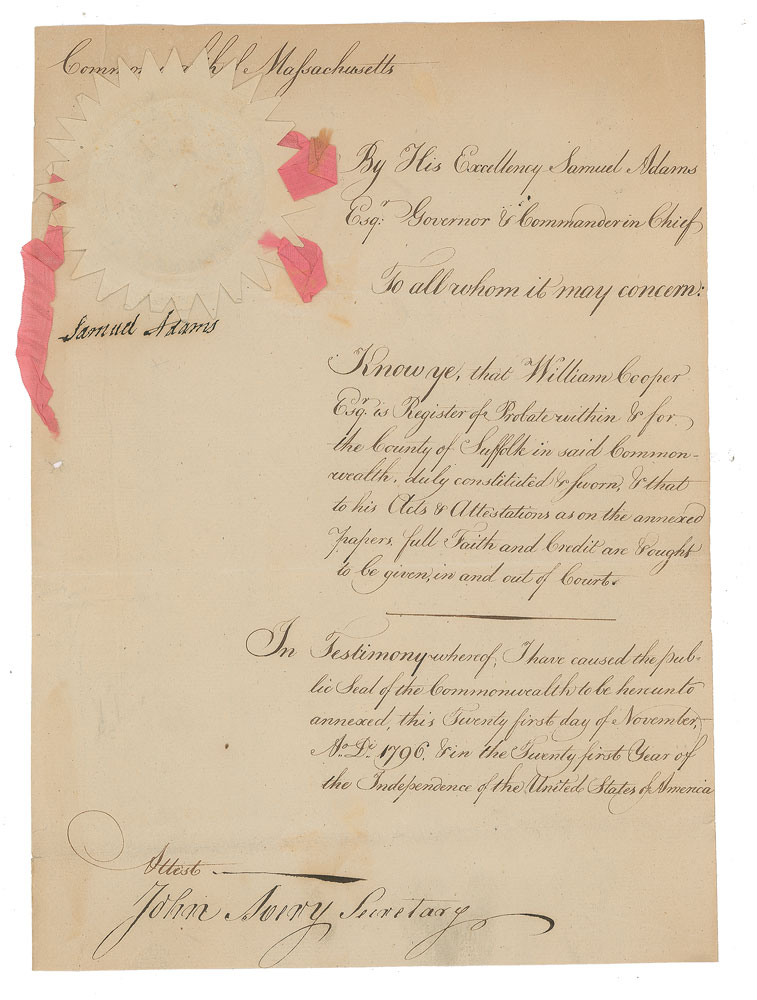 Commonwealth of Massachusetts
By His Excellency Samuel Adams
Esqr. Governor & Commander in Chief
To all whom it may concern:
Samuel Adams
Know ye, that William Cooper
Esqr. is Register of Probate within & for
the County of Suffolk in said Common-
wealth, duly constituted & sworn, & that
to his Acts & Attestations as on the annexed
papers, full Faith and Credit are & ought
to be given, in and out of Court.
In Testimony whereof, I have caused the pub-
lic Seal of the Commonwealth to be hereunto
annexed, this Twenty first day of November,
Ao. Di. 1796. & in the Twenty first Year of
the Independence of the United States of America
Attest
John Avery Secretary